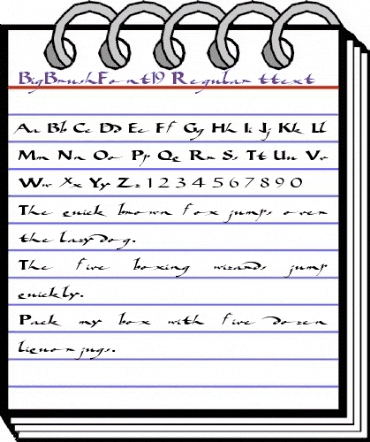 BigBrushFont19 Regular ttext
Aa Bb Cc Dd Ee Ff Gg Hh Ii Jj Kk Ll
Mm Nn Oo Pp Qq Rr Ss Tt Uu Vv
Ww Xx Yy Zz 1 2 3 4 5 6 7 8 9 0
The quick brown fox jumps over
the lazy dog.
The five boxing wizards jump
quickly.
Pack my box with five dozen
liquor jugs.